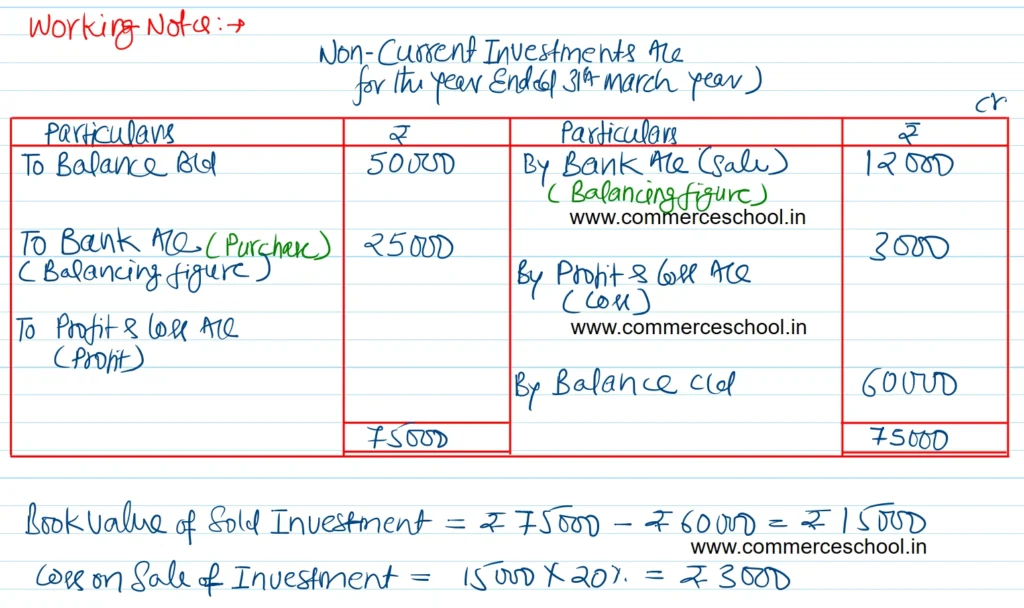 Working Note:→
Non-Current Investments A/c
for the year Ended 31st march year)
Cr
Particulars ₹ Particulars ₹
To Balance B/d 50000 By Bank A/c (Sale) 12000
(Balancing figure)
www.commerceschool.in
To Bank A/c (Purchase) 25000 3000
(Balancing figure) By Profit & Loss A/c
(Loss)
To Profit & Loss A/c www.commerceschool.in
(Profit)
By Balance C/d 60000
75000 75000
Book value of Sold Investment = ₹75000 - ₹60000 = ₹15000
www.commerceschool.in
Loss on Sale of Investment = 15000 X 20% = ₹3000